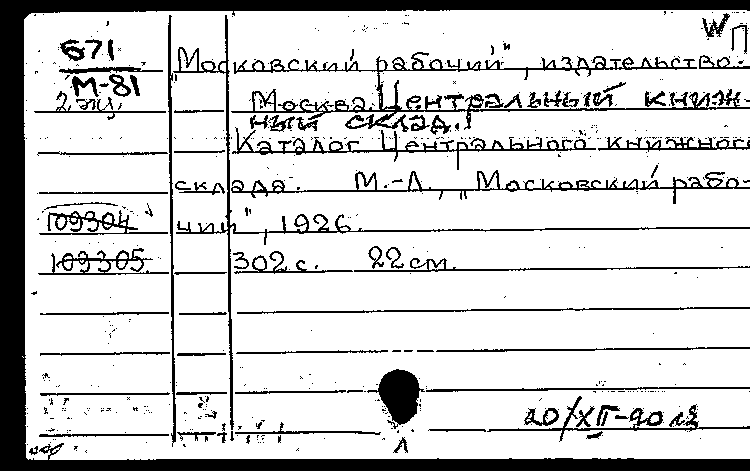 W П
671
М-81
2 экз.
"Московский рабочий", издательство.
Москва. Центральный книж-
ный склад.
Каталог Центрального книжного
склада. М.-Л., "Московский рабо-
109304
чий", 1926.
109305
302 с. 22 см.
20/XII-90